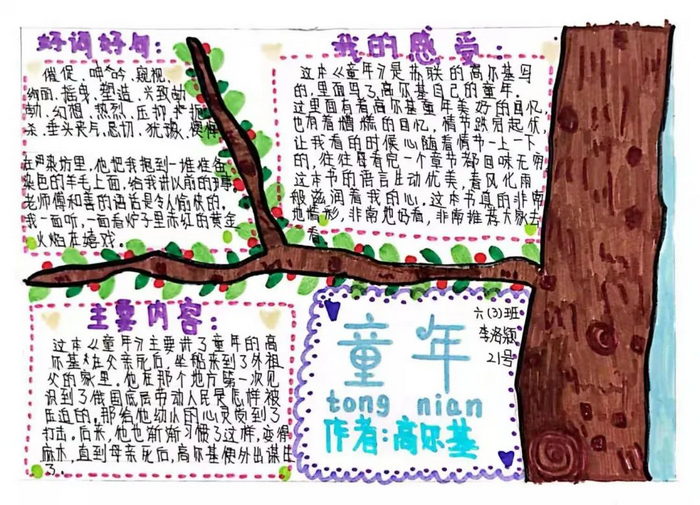 好词好句:
催促、呻吟、窥视、
细雨、摇曳、塑造、兴致勃
勃、幻想、热烈、压抑、扩
杀、垂头丧气、恳切、犹豫、懊悔
在染坊里,他把我抱到一堆准备
染色的羊毛上面,给我讲以前的事。
老师傅和善的讲话是令人愉快的,
我一面听,一面看炉子里赤红的黄金
火焰在嬉戏。
我的感受:
这本《童年》是苏联的高尔基写
的,里面写了高尔基自己的童年。
这里面有着高尔基童年美好的回忆,
也有着糟糕的回忆,情节跌宕起伏,
让我看的时候心随着情节一上一下
的,往往导看完一个章节都回味无穷
这本书的语言生动优美,春风化雨
般滋润着我的心,这本书真的非常
地精彩,非常地好看,非常推荐大家去
看
主要内容:
这本《童年》主要讲了童年的高
尔基在父亲死后,坐船来到了外祖
父的家里。他在那个地方第一次见
识到了俄国底层劳动人民是怎样被
压迫的,那给他幼小的心灵受到了
打击。后来,他也渐渐习惯了这样,变得
麻木,直到母亲死后,高尔基便外出谋生
了。
六(3)班
李洛颖
21号
童年
tong nian
作者:高尔基